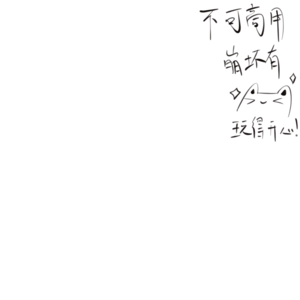 不可商用
崩坏有
玩得开心!